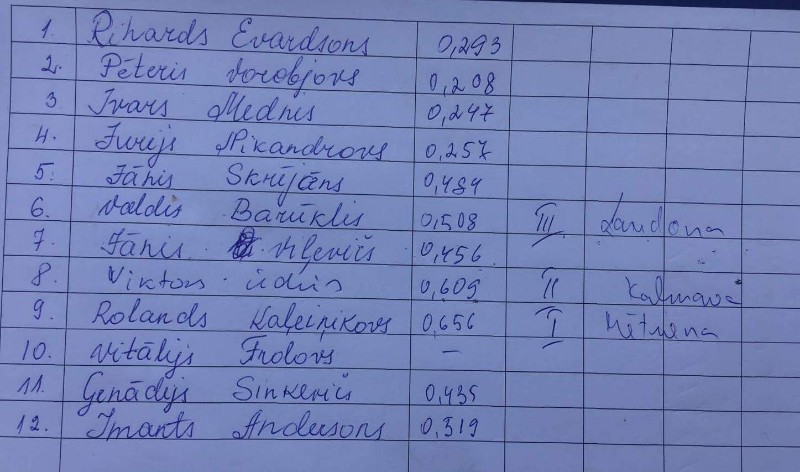 1. Rihards Evardsons 0,293
2. Pēteris Vorobjovs 0,208
3 Ivars Mednis 0,247
4. Jurijs Nikandrovs 0,257
5. Jānis Skrējāns 0,484
6. Valdis Barūklis 0,508 III Laudona
7. Jānis Viļevičs 0,456
8. Viktors Ūdris 0,605 II Kalnava
9. Rolands Kaļeiņikovs 0,656 I Mētriena
10. Vitālijs Frolovs —
11. Genādijs Sinkevičs 0,435
12. Imants Andersons 0,319